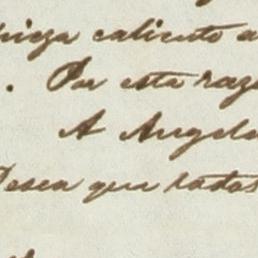 caliente a
. Por esta raz
A Angela
Desea que todas